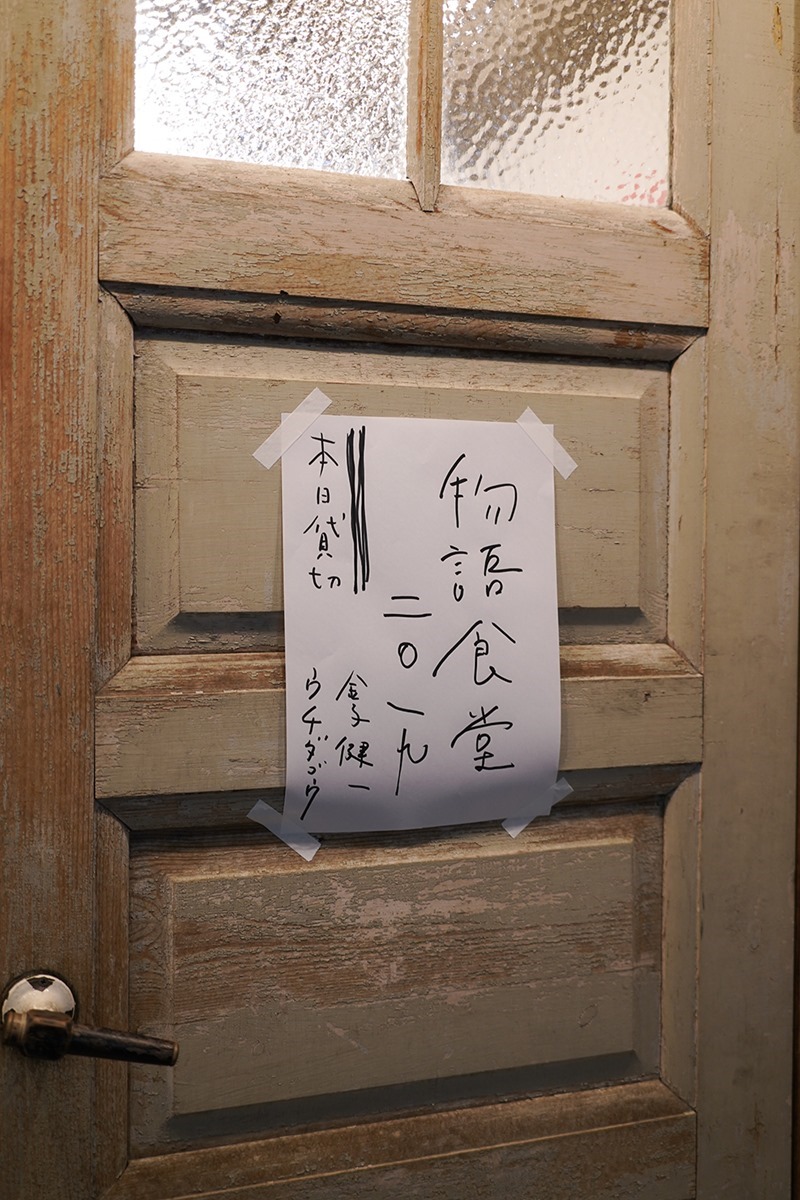 物語食堂
二〇一九
金子健一
ウチダゴウ
本日貸切